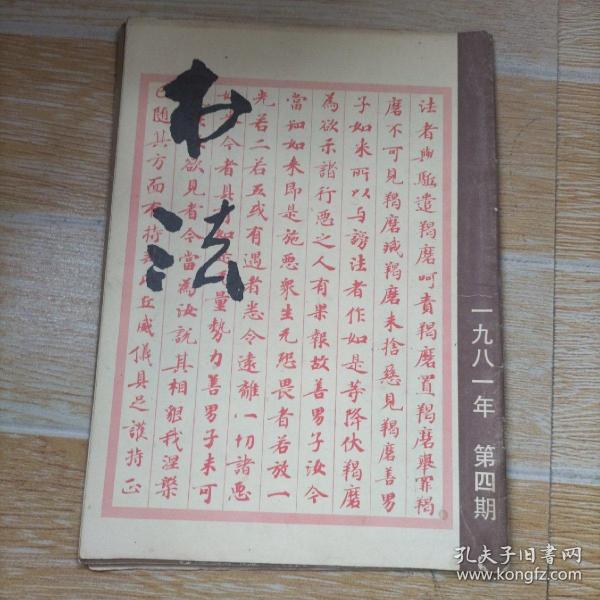 书法
法者與驅遣羯磨呵責羯磨置羯磨舉罪羯
磨不可見羯磨滅羯磨未捨惡見羯磨善男
子如来所以与謗法者作如是等降伏羯磨
為欲示諸行惡之人有果報故善男子汝今
當知如来即是施惡衆生无恐畏者若放一
光若二若五或有遇者悉令遠離一切諸惡
如来今者具
量勢力善男子未可
欲見者今當為汝說其相貌我涅槃
已随其方面有持
丘威儀具足護持正
一九八一年 第四期
孔夫子旧书网
www.kongfz.com